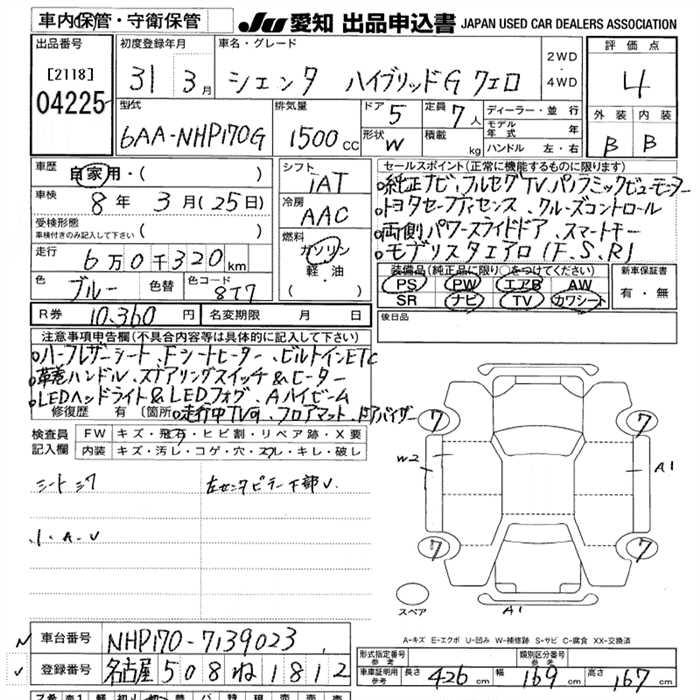 車内保管・守衛保管 JU 愛知 出品申込書 JAPAN USED CAR DEALERS ASSOCIATION
出品番号 [2118] 04225
初度登録年月 31 3月
車名・グレード シエンタ ハイブリッドG クエロ
2WD・4WD
評価点 4
外装 B 内装 B
型式 6AA-NHP170G
排気量 1500cc
ドア 5 形状 W
定員 7人 積載 kg
ディーラー・並行
モデル年式 年
ハンドル 左・右
車歴 自家用・( )
車検 8年 3月(25日)
受検形態 車検付きのみ記入して下さい ( )
走行 6万0千320km
色 ブルー 色替 色コード 8T7
シフト IAT
冷房 AAC
燃料 ガソリン・軽油・( )
R券 10,360円 名変期限 月 日
セールスポイント(正常に機能するものに限ります)
純正ナビ・フルセグTV、パノラミックビューモニター
トヨタセーフティセンス、クルーズコントロール
両側パワースライドドア、スマートキー
モデリスタエアロ(F.S.R)
装備品(純正品に限り○をつけてください)
PS PW エアB AW
SR ナビ TV カワシート
新車保証書 有・無
後日品
注意事項申告欄(不具合内容等は具体的に記入して下さい)
ハーフレザーシート、Fシートヒーター、ビルトインETC
革巻ハンドル、ステアリングスイッチ&ヒーター
LEDヘッドライト&LEDフォグ、Aハイビーム
修復歴 有 [箇所 走行中TV可、フロアマット、ドアバイザー
検査員記入欄
FW キズ・飛石・ヒビ割・リペア跡・X要
内装 キズ・汚レ・コゲ・穴・スレ・キレ・破レ
シートシワ 左センタピラー下部U
小・A・U
7 7 7 7
W2 A1 A1
スペア
A-キズ E-エクボ U-凹み W-補修跡 S-サビ C-腐食 XX-交換済
車台番号 NHP170-7139023
登録番号 名古屋 508 ね 1812
形式指定番号 参考 類別区分番号 参考
車庫証明用 参考 長さ 426cm 幅 169cm 高さ 167cm